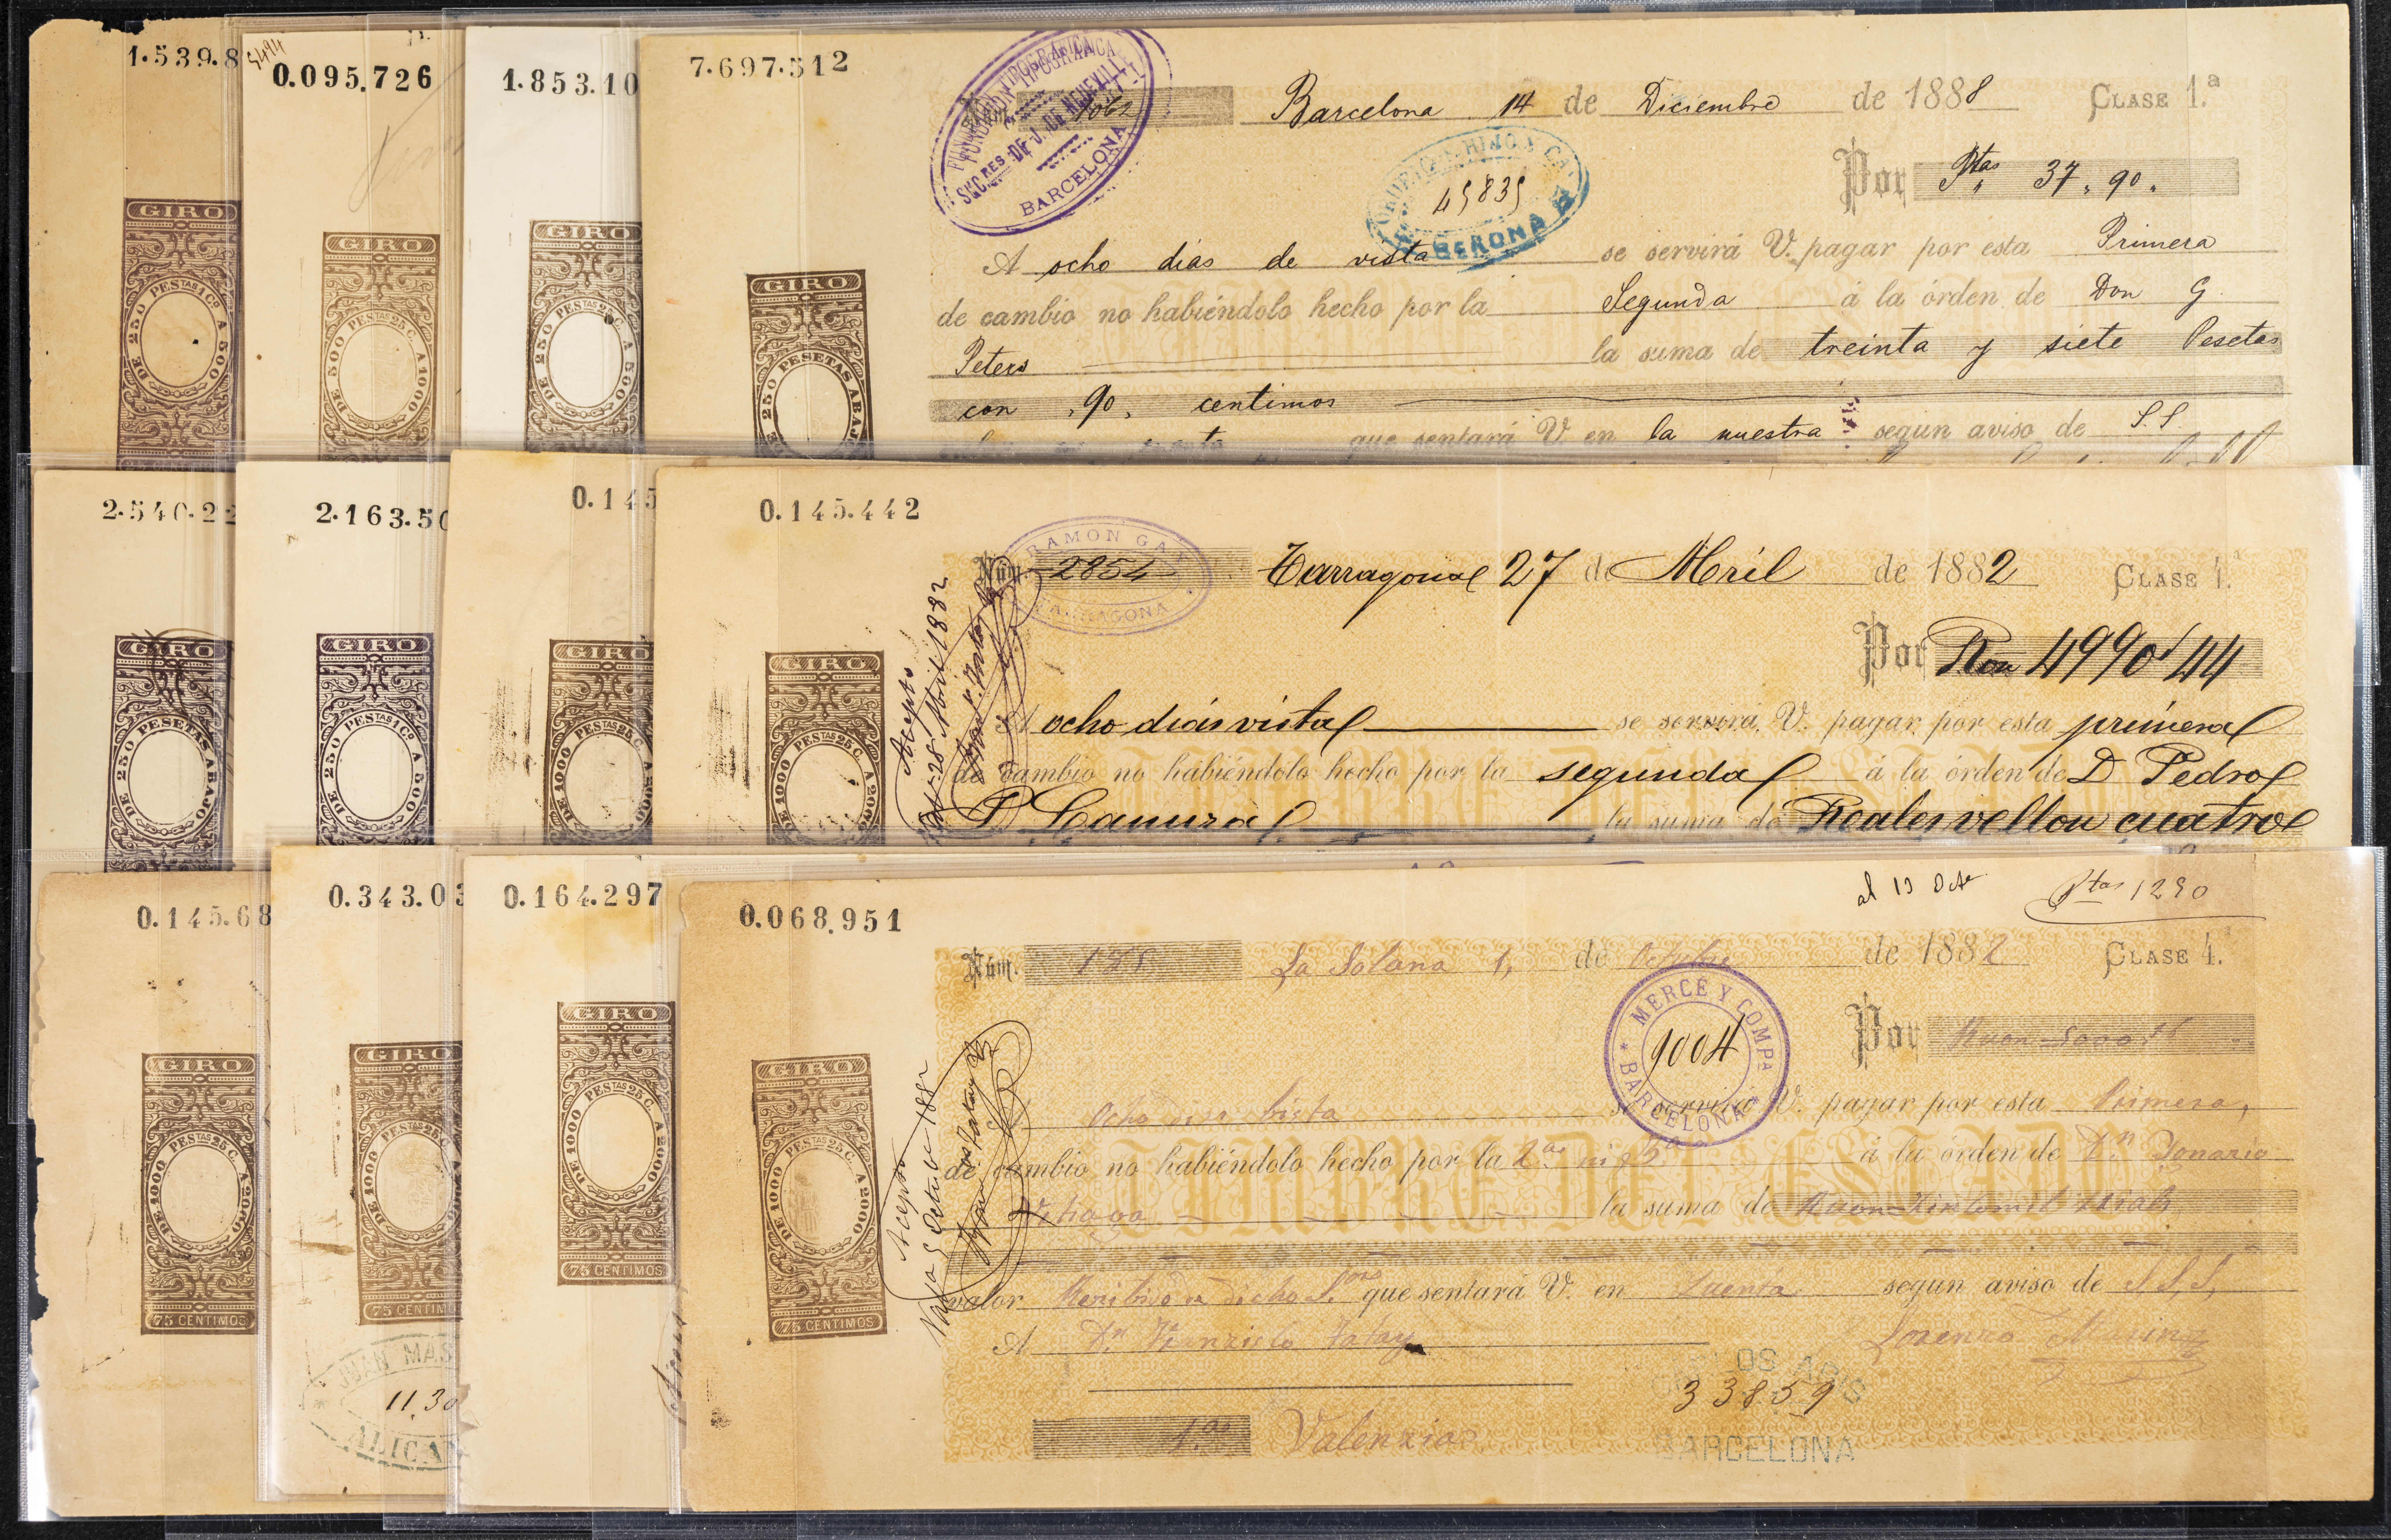 1.539.8
5494
0.095.726
1.853.10
7.697.512
GIRO
DE 250 PESTAS 1 Cº A 5000
GIRO
DE 500 PESTAS 25 C. A 1000
GIRO
DE 250 PESTAS 25 C. A 5000
GIRO
DE 250 PESETAS ABAJ
FUNDICION TIPOGRAFICA
SUCRES. DE J. DE NEUFVILLE
BARCELONA
Barcelona 14 de Diciembre de 1888 CLASE 1.ª
HIJO Y CA
45835
GERONA
Por Ptas 37,90.
A ocho dias de vista se servirá V. pagar por esta Primera
de cambio no habiéndolo hecho por la Segunda á la órden de Don G.
Peters la suma de treinta y siete Pesetas
con 90, centimos
que sentará V. en la nuestra segun aviso de S.S.
2.540.22
2.163.50
0.145
0.145.442
GIRO
DE 250 PESETAS ABAJO
GIRO
DE 250 PESTAS 1 Cº A 500
GIRO
DE 1000 PESTAS 25 C. A 2000
GIRO
DE 1000 PESTAS 25 C. A 2000
RAMON GAY
TARRAGONA
Núm. 2854 Tarragona 27 de Abril de 1882 CLASE 4.ª
Por Rvon 4990'44
Acepto
28 Abril 1882
A ocho dias vista se servirá V. pagar por esta primera
de cambio no habiéndolo hecho por la segunda á la órden de D Pedro
P Camura la suma de Reales vellon cuatro
0.145.68
0.343.03
0.164.297
0.068.951
GIRO
DE 1000 PESTAS 25 C. A 2000
75 CENTIMOS
GIRO
DE 1000 PESTAS 25 C
75 CENTIM
JUAN MAS
11.30
ALICAN
GIRO
DE 1000 PESTAS 25 C. A 2000
75 CENTIMOS
GIRO
DE 1000 PESTAS 25 C. A 2000
75 CENTIMOS
al 13 Oct.e Ptas 1250
Núm. La Solana 1, de Octubre de 1882 CLASE 4.ª
MERCE Y COMPª
9004
BARCELONA
Por Rvon
Acepto
Octubre 1882
A Ocho dias bista se servirá V. pagar por esta Primera,
de cambio no habiéndolo hecho por la 2ª ni 3ª á la órden de Dn
la suma de Rvon
TIMBRE DEL ESTADO
valor Recibido de dicho Sor que sentará V. en Cuenta segun aviso de S.S.S,
A Dn
Lorenzo
33859
Valencia
BARCELONA